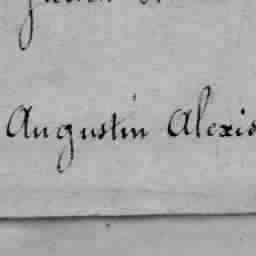 Augustin Alexis